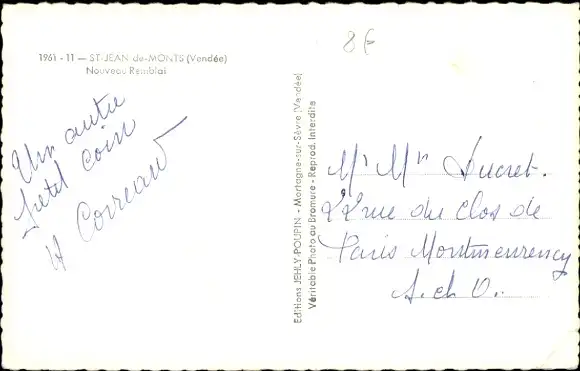 8€
1961 - 11 — ST-JEAN-de-MONTS (Vendée)
Nouveau Remblai
Un autre
petit coin
Editions JEHLY-POUPIN - Mortagne-sur-Sèvre (Vendée)
Véritable Photo au Bromure - Reprod. Interdite
Mr Mr Ducret.
rue du Clos de
Paris Montmorency
S. et O.